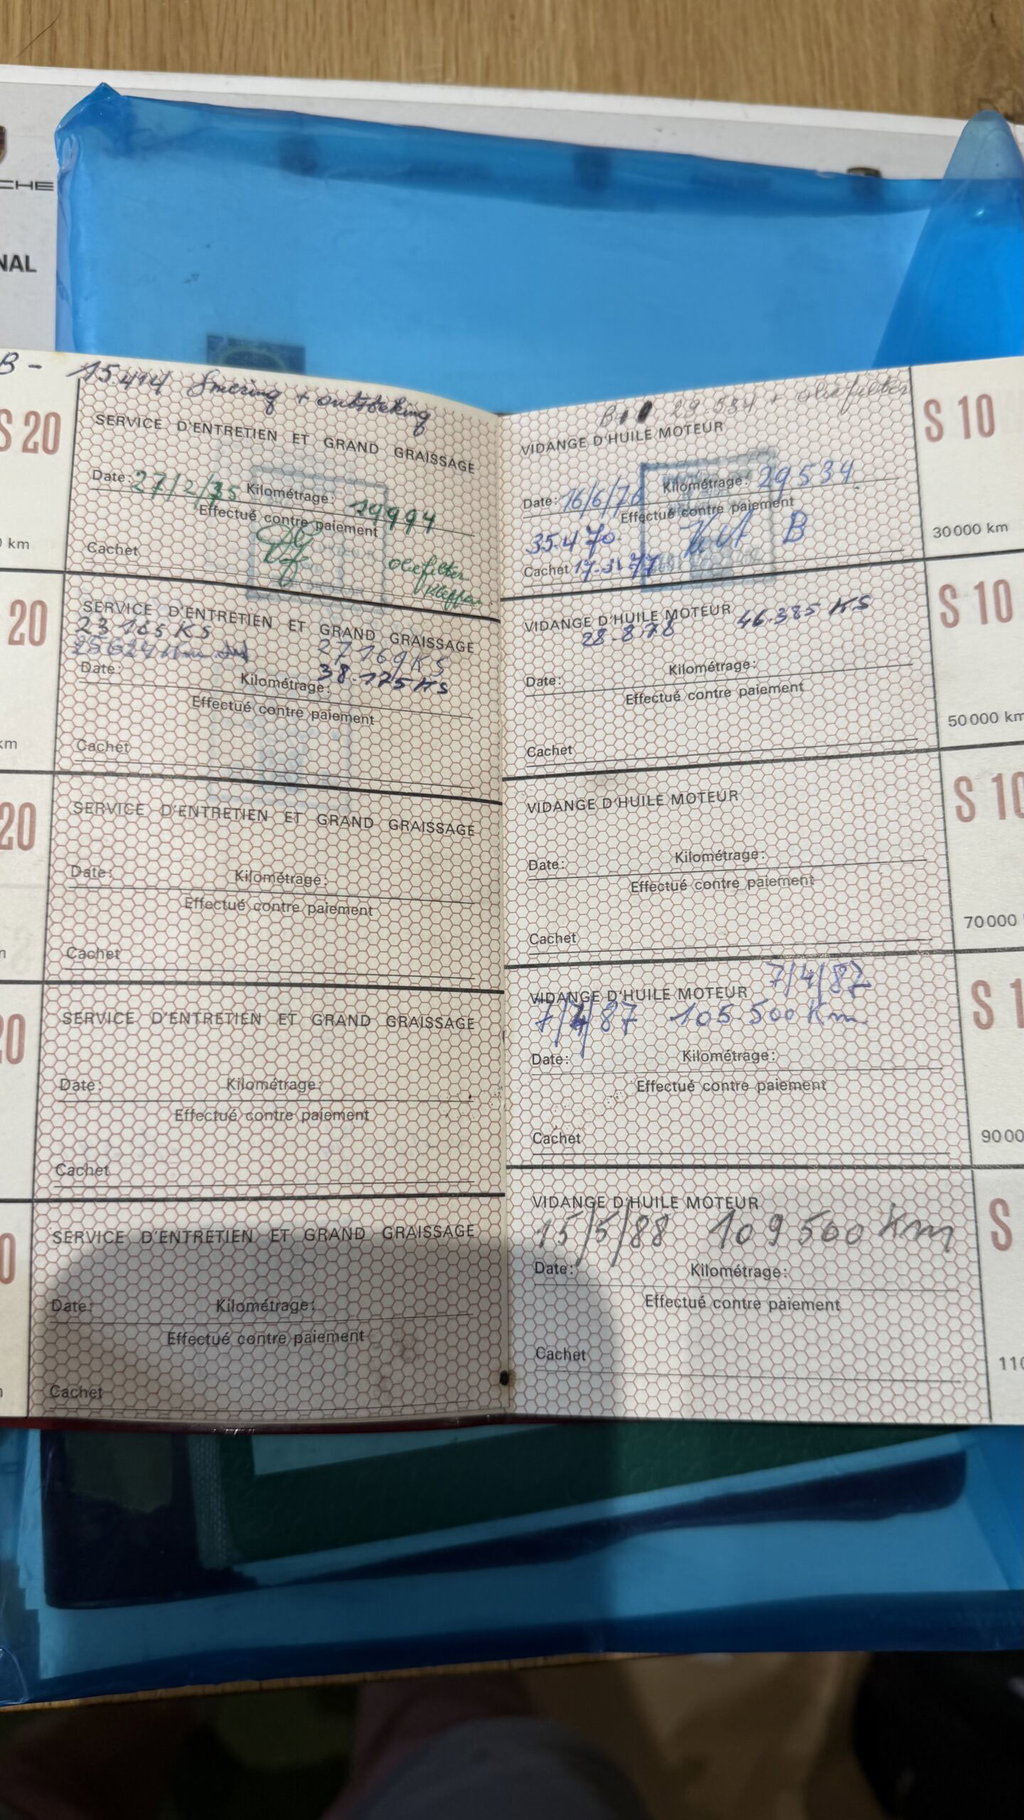 CHE
NAL
B - 15414 Smering + ontsteking
S 20
SERVICE D'ENTRETIEN ET GRAND GRAISSAGE
Date: 27/2/75 Kilométrage: 19994
Effectué contre paiement
km
Cachet oliefilter
20
SERVICE D'ENTRETIEN ET GRAND GRAISSAGE
23165 KS 27169 KS
Date: Kilométrage: 38.125 KS
Effectué contre paiement
km
Cachet
20
SERVICE D'ENTRETIEN ET GRAND GRAISSAGE
Date: Kilométrage:
Effectué contre paiement
Cachet
20
SERVICE D'ENTRETIEN ET GRAND GRAISSAGE
Date: Kilométrage:
Effectué contre paiement
Cachet
0
SERVICE D'ENTRETIEN ET GRAND GRAISSAGE
Date: Kilométrage:
Effectué contre paiement
Cachet
29 534 + oliefilter
VIDANGE D'HUILE MOTEUR
S 10
Date: 16/6/76 Kilométrage: 29534
Effectué contre paiement
35.470 B
30000 km
Cachet 17.3.77
VIDANGE D'HUILE MOTEUR 46.385 KS
S 10
28 878
Date: Kilométrage:
Effectué contre paiement
50000 km
Cachet
VIDANGE D'HUILE MOTEUR
S 10
Date: Kilométrage:
Effectué contre paiement
70000
Cachet
VIDANGE D'HUILE MOTEUR 7/4/87
S 1
7/4/87 105 500 Km
Date: Kilométrage:
Effectué contre paiement
Cachet
9000
VIDANGE D'HUILE MOTEUR
S
15/5/88 109 500 Km
Date: Kilométrage:
Effectué contre paiement
Cachet
110